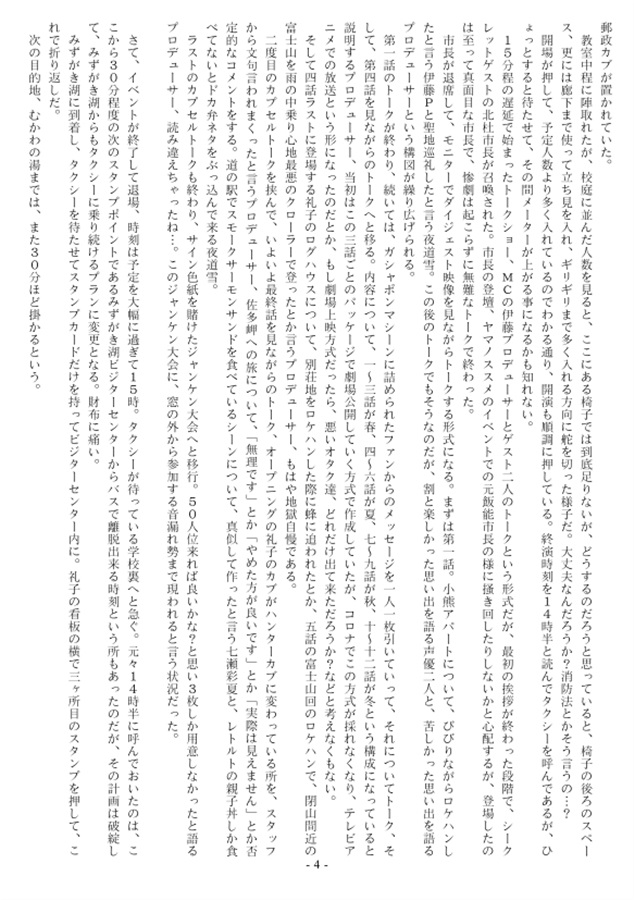 郵政カブが置かれていた。
　教室中程に陣取れたが、校庭に並んだ人数を見ると、ここにある椅子では到底足りないが、どうするのだろうと思っていると、椅子の後ろのスペー
ス、更には廊下まで使って立ち見を入れ、ギリギリまで多く入れる方向に舵を切った様子だ。大丈夫なんだろうか？消防法とかそう言うの…？
　開場が押して、予定人数より多く入れているのでわかる通り、開演も順調に押している。終演時刻を１４時半と読んでタクシーを呼んであるが、ひ
ょっとすると待たせて、その間メーターが上がる事になるかも知れない。
　１５分程の遅延で始まったトークショー、ＭＣの伊藤プロデューサーとゲスト二人のトークという形式だが、最初の挨拶が終わった段階で、シーク
レットゲストの北杜市長が召喚された。市長の登壇、ヤマノススメのイベントでの元飯能市長の様に掻き回したりしないかと心配するが、登場したの
は至って真面目な市長で、惨劇は起こらずに無難なトークで終わった。
　市長が退席して、モニターでダイジェスト映像を見ながらトークする形式になる。まずは第一話。小熊アパートについて、びびりながらロケハンし
たと言う伊藤Ｐと聖地巡礼したと言う夜道雪。この後のトークでもそうなのだが、割と楽しかった思い出を語る声優二人と、苦しかった思い出を語る
プロデューサーという構図が繰り広げられる。
　第一話のトークが終わり、続いては、ガシャポンマシーンに詰められたファンからのメッセージを一人一枚引いていって、それについてトーク、そ
して、第四話を見ながらのトークへと移る。内容について、一～三話が春、四～六話が夏、七～九話が秋、十～十二話が冬という構成になっていると
説明するプロデューサー、当初はこの三話ごとのパッケージで劇場公開していく方式で作成していたが、コロナでこの方式が採れなくなり、テレビア
ニメでの放送という形になったのだとか、もし劇場上映方式だったら、悪いオタク達、どれだけ出て来ただろうか？などと考えなくもない。
　そして四話ラストに登場する礼子のログハウスについて、別荘地をロケハンした際に蜂に追われたとか、五話の富士山回のロケハンで、閉山間近の
富士山を雨の中乗り心地最悪のクローラーで登ったとか言うプロデューサー、もはや地獄自慢である。
　二度目のカプセルトークを挟んで、いよいよ最終話を見ながらのトーク、オープニングの礼子のカブがハンターカブに変わっている所を、スタッフ
から文句言われまくったと言うプロデューサー、佐多岬への旅について、「無理です」とか「やめた方が良いです」とか「実際は見えません」とか否
定的なコメントをする。道の駅でスモークサーモンサンドを食べているシーンについて、真似して作ったと言う七瀬彩夏と、レトルトの親子丼しか食
べてないとドカ弁ネタをぶっ込んで来る夜道雪。
　ラストのカプセルトークも終わり、サイン色紙を賭けたジャンケン大会へと移行。５０人位来れば良いかな？と思い３枚しか用意しなかったと語る
プロデューサー、読み違えちゃったね…。このジャンケン大会に、窓の外から参加する音漏れ勢まで現われると言う状況だった。
　さて、イベントが終了して退場、時刻は予定を大幅に過ぎて１５時。タクシーが待っている学校裏へと急ぐ。元々１４時半に呼んでおいたのは、こ
こから３０分程度の次のスタンプポイントであるみずがき湖ビジターセンターからバスで離脱出来る時刻という所もあったのだが、その計画は破綻し
て、みずがき湖からもタクシーに乗り続けるプランに変更となる。財布に痛い。
　みずがき湖に到着し、タクシーを待たせてスタンプカードだけを持ってビジターセンター内に。礼子の看板の横で三ヶ所目のスタンプを押して、こ
れで折り返しだ。
　次の目的地、むかわの湯までは、また３０分ほど掛かるという。
- 4 -